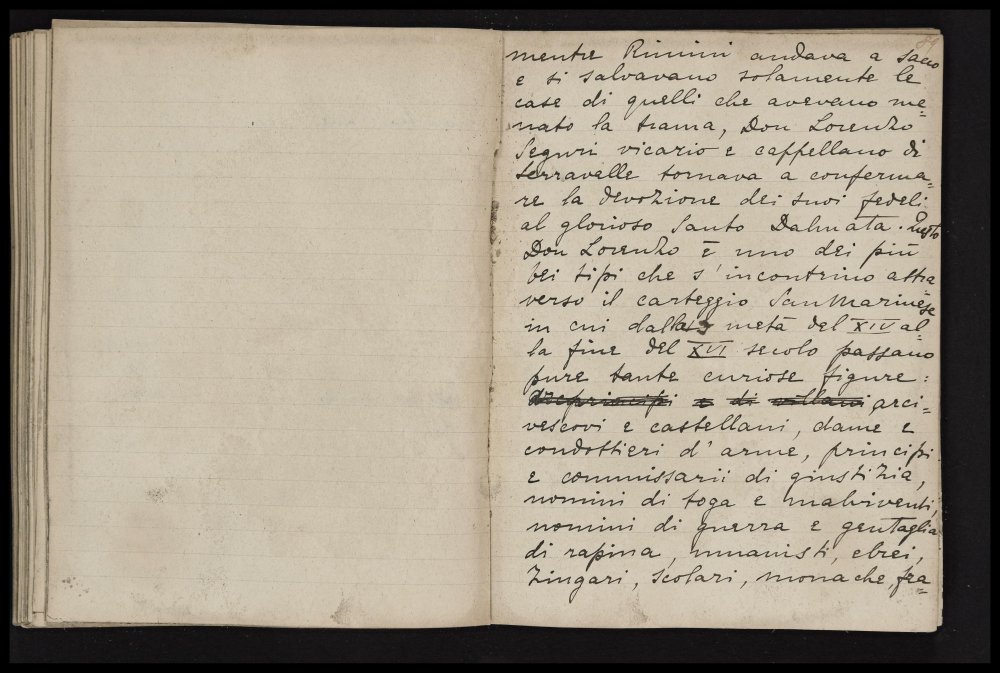 mentre Rimini andava a sacco
e si salvavano solamente le
case di quelli che avevano me=
nato la trama, Don Lorenzo
Seguri vicario e cappellano di
Serravalle tornava a conferma=
re la devozione dei suoi fedeli
al glorioso Santo Dalmata. Questo
Don Lorenzo è uno dei più
bei tipi che s'incontrino attra
verso il carteggio San Marinese
in cui dalla metà del XIV al=
la fine del XVI secolo passano
pure tante curiose figure:
principi e di villani arci=
vescovi e castellani, dame e
condottieri d'arme, principi
e commissarii di giustizia,
uomini di toga e malviventi,
uomini di guerra e gentaglia
di rapina, umanisti, ebrei,
zingari, scolari, monache, fra=